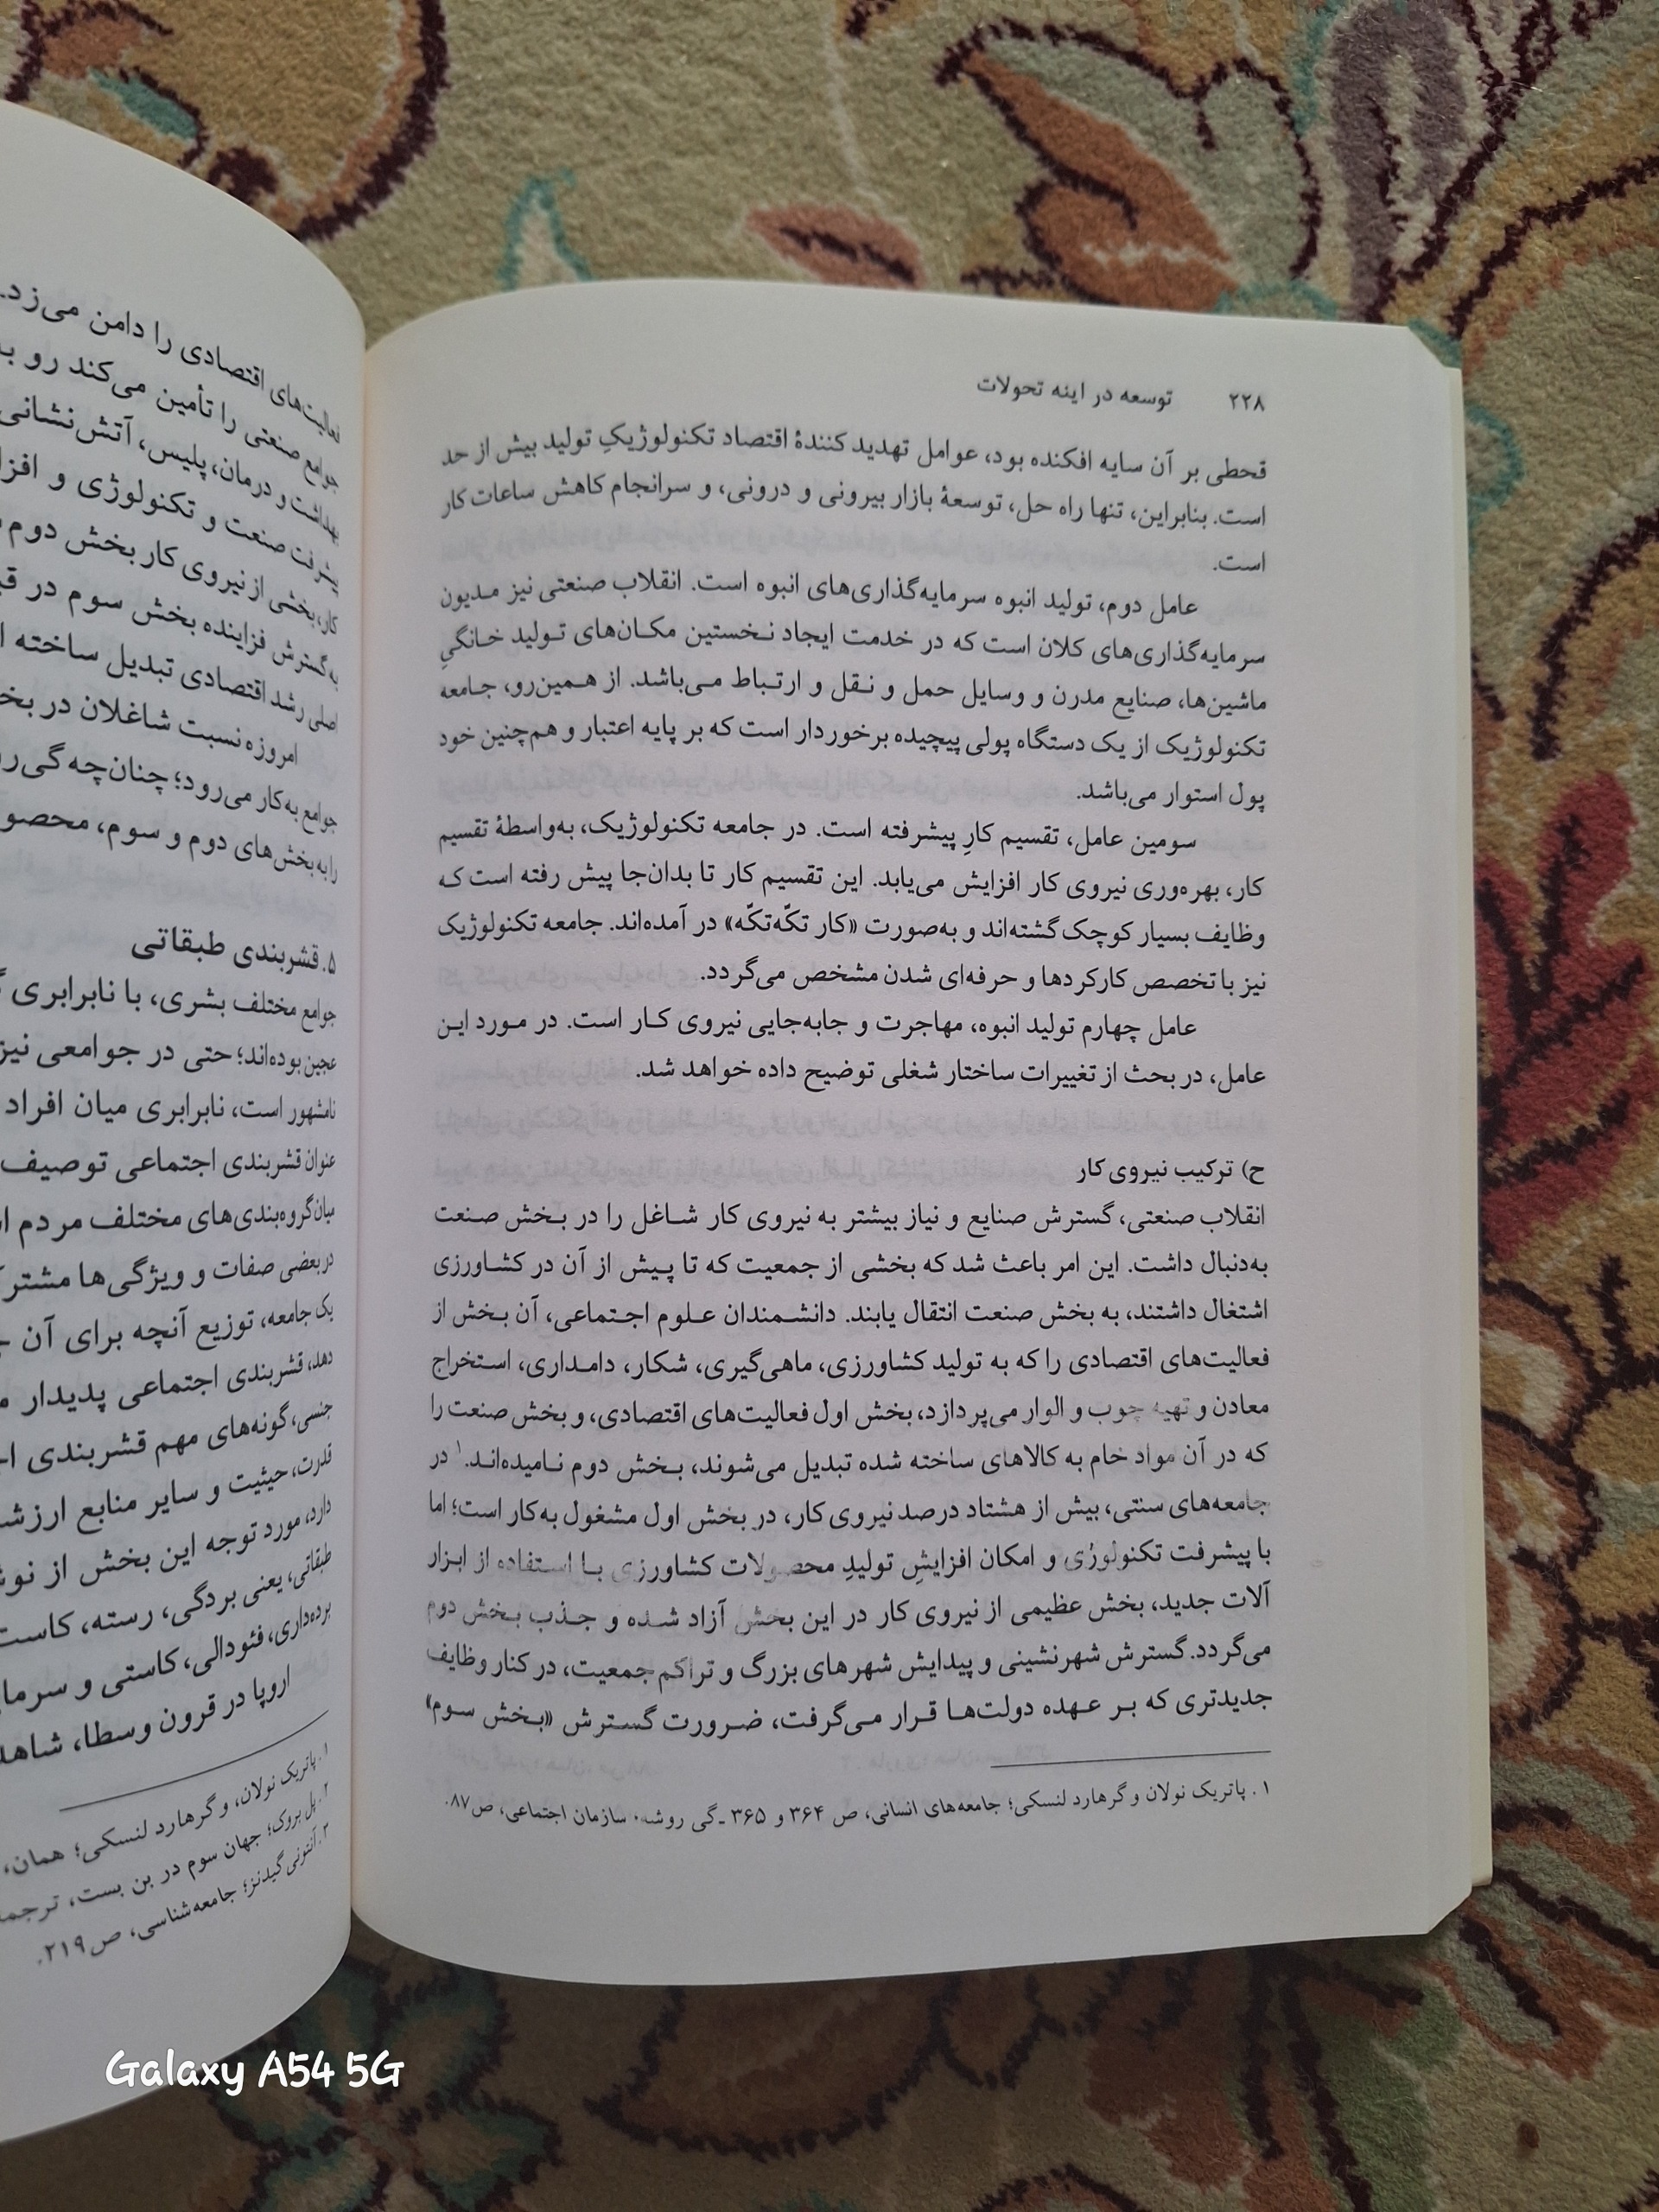 ۲۲۸ توسعه در اینه تحولات
قحطی بر آن سایه افکنده بود، عوامل تهدید کنندهٔ اقتصاد تکنولوژیکِ تولید بیش از حد
است. بنابراین، تنها راه حل، توسعهٔ بازار بیرونی و درونی، و سرانجام کاهش ساعات کار
است.
عامل دوم، تولید انبوه سرمایه‌گذاری‌های انبوه است. انقلاب صنعتی نیز مدیون
سرمایه‌گذاری‌های کلان است که در خدمت ایجاد نخستین مکان‌های تولید خانگیِ
ماشین‌ها، صنایع مدرن و وسایل حمل و نقل و ارتباط می‌باشد. از همین‌رو، جامعه
تکنولوژیک از یک دستگاه پولی پیچیده برخوردار است که بر پایه اعتبار و هم‌چنین خود
پول استوار می‌باشد.
سومین عامل، تقسیم کارِ پیشرفته است. در جامعه تکنولوژیک، به‌واسطهٔ تقسیم
کار، بهره‌وری نیروی کار افزایش می‌یابد. این تقسیم کار تا بدان‌جا پیش رفته است که
وظایف بسیار کوچک گشته‌اند و به‌صورت «کار تکّه‌تکّه» در آمده‌اند. جامعه تکنولوژیک
نیز با تخصص کارکردها و حرفه‌ای شدن مشخص می‌گردد.
عامل چهارم تولید انبوه، مهاجرت و جابه‌جایی نیروی کار است. در مورد این
عامل، در بحث از تغییرات ساختار شغلی توضیح داده خواهد شد.
ح) ترکیب نیروی کار
انقلاب صنعتی، گسترش صنایع و نیاز بیشتر به نیروی کار شاغل را در بخش صنعت
به‌دنبال داشت. این امر باعث شد که بخشی از جمعیت که تا پیش از آن در کشاورزی
اشتغال داشتند، به بخش صنعت انتقال یابند. دانشمندان علوم اجتماعی، آن بخش از
فعالیت‌های اقتصادی را که به تولید کشاورزی، ماهی‌گیری، شکار، دامداری، استخراج
معادن و تهیه چوب و الوار می‌پردازد، بخش اول فعالیت‌های اقتصادی، و بخش صنعت را
که در آن مواد خام به کالاهای ساخته شده تبدیل می‌شوند، بخش دوم نامیده‌اند.۱ در
جامعه‌های سنتی، بیش از هشتاد درصد نیروی کار، در بخش اول مشغول به‌کار است؛ اما
با پیشرفت تکنولوژی و امکان افزایشِ تولیدِ محصولات کشاورزی با استفاده از ابزار
آلات جدید، بخش عظیمی از نیروی کار در این بخش آزاد شده و جذب بخش دوم
می‌گردد. گسترش شهرنشینی و پیدایش شهرهای بزرگ و تراکم جمعیت، در کنار وظایف
جدیدتری که بر عهده دولت‌ها قرار می‌گرفت، ضرورت گسترش «بخش سوم»
۱. پاتریک نولان و گرهارد لنسکی؛ جامعه‌های انسانی، ص ۳۶۴ و ۳۶۵ ـ گی روشه، سازمان اجتماعی، ص۸۷.
فعالیت‌های اقتصادی را دامن می‌زد.
جوامع صنعتی را تأمین می‌کند رو به
بهداشت و درمان، پلیس، آتش‌نشانی
پیشرفت صنعت و تکنولوژی و
کار، بخشی از نیروی کار بخش دوم
به گسترش فزاینده بخش سوم در
اصلی رشد اقتصادی تبدیل ساخته
امروزه نسبت شاغلان در
جوامع به‌کار می‌رود؛ چنان‌چه گی
را به بخش‌های دوم و سوم،
۵. قشربندی طبقاتی
جوامع مختلف بشری، با نابرابری
عجین بوده‌اند؛ حتی در جوامعی نیز
نامشهور است، نابرابری میان افراد
عنوان قشربندی اجتماعی توصیف
میان گروه‌بندی‌های مختلف مردم
در بعضی صفات و ویژگی‌ها
یک جامعه، توزیع آنچه برای آن
دهد، قشربندی اجتماعی پدیدار
جنسی، گونه‌های مهم قشربندی
قدرت، حیثیت و سایر منابع
دارد، مورد توجه این بخش از
طبقاتی، یعنی بردگی، رسته، کاست
برده‌داری، فئودالی، کاستی و
اروپا در قرون وسطا، شاهد
۱. پاتریک نولان، و گرهارد لنسکی؛ همان،
۲. پل بروک؛ جهان سوم در بن بست،
۳. آنتونی گیدنز؛ جامعه‌شناسی، ص ۲۱۹.
Galaxy A54 5G